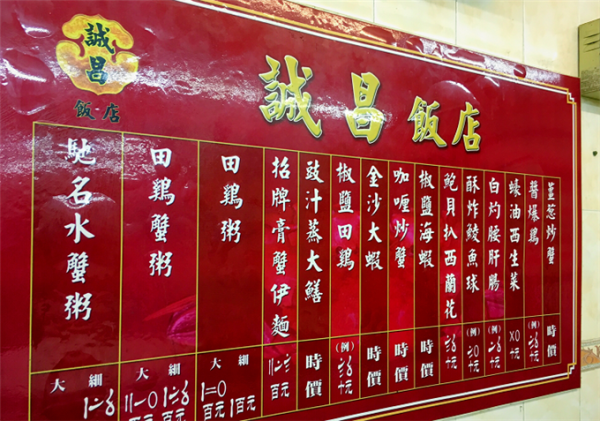 誠昌
飯店
誠昌飯店
薑葱炒蟹
時價
醬爆鷄
蠔油西生菜
白灼腰肝腸
酥炸鯪魚球
鮑貝扒西蘭花
椒鹽海蝦
時價
咖喱炒蟹
時價
金沙大蝦
時價
椒鹽田鷄
豉汁蒸大鱔
時價
招牌膏蟹伊麵
百元
田鷄粥
大 細
百元 1百元
田鷄蟹粥
大 細
百元 百元
馳名水蟹粥
大 細